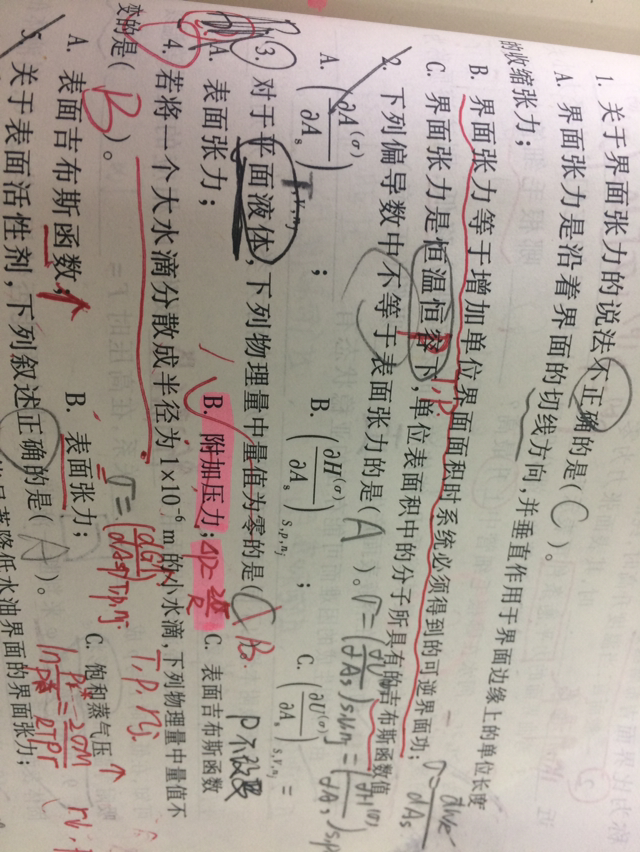 1. 关于界面张力的说法不正确的是( C )。
A. 界面张力是沿着界面的切线方向,并垂直作用于界面边缘上的单位长度
的收缩张力;
B. 界面张力等于增加单位界面面积时系统必须得到的可逆界面功;
C. 界面张力是恒温恒容下,单位表面积中的分子所具有的吉布斯函数值
2. 下列偏导数中不等于表面张力的是( A )。
A. (∂A^(σ)/∂A_s) ; B. (∂H^(σ)/∂A_s)_{S,p,n_j} ; C. (∂U^(σ)/∂A_s)_{S,V,n_j}
3. 对于平面液体,下列物理量中量值为零的是( B
A. 表面张力; B. 附加压力; C. 表面吉布斯函数
4. 若将一个大水滴分散成半径为 1×10⁻⁶ m 的小水滴,下列物理量中量值不
变的是( B )。
A. 表面吉布斯函数; B. 表面张力; C. 饱和蒸气压
5. 关于表面活性剂,下列叙述正确的是( A )。
著降低水油界面的界面张力;